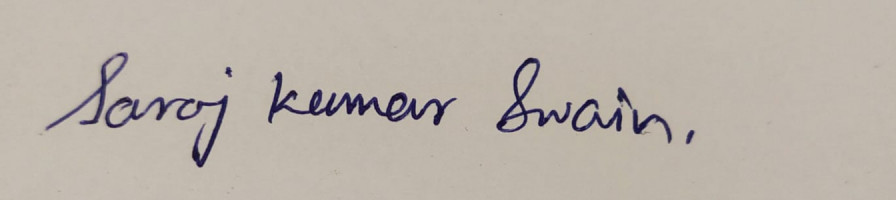 Saroj Kumar Swain.